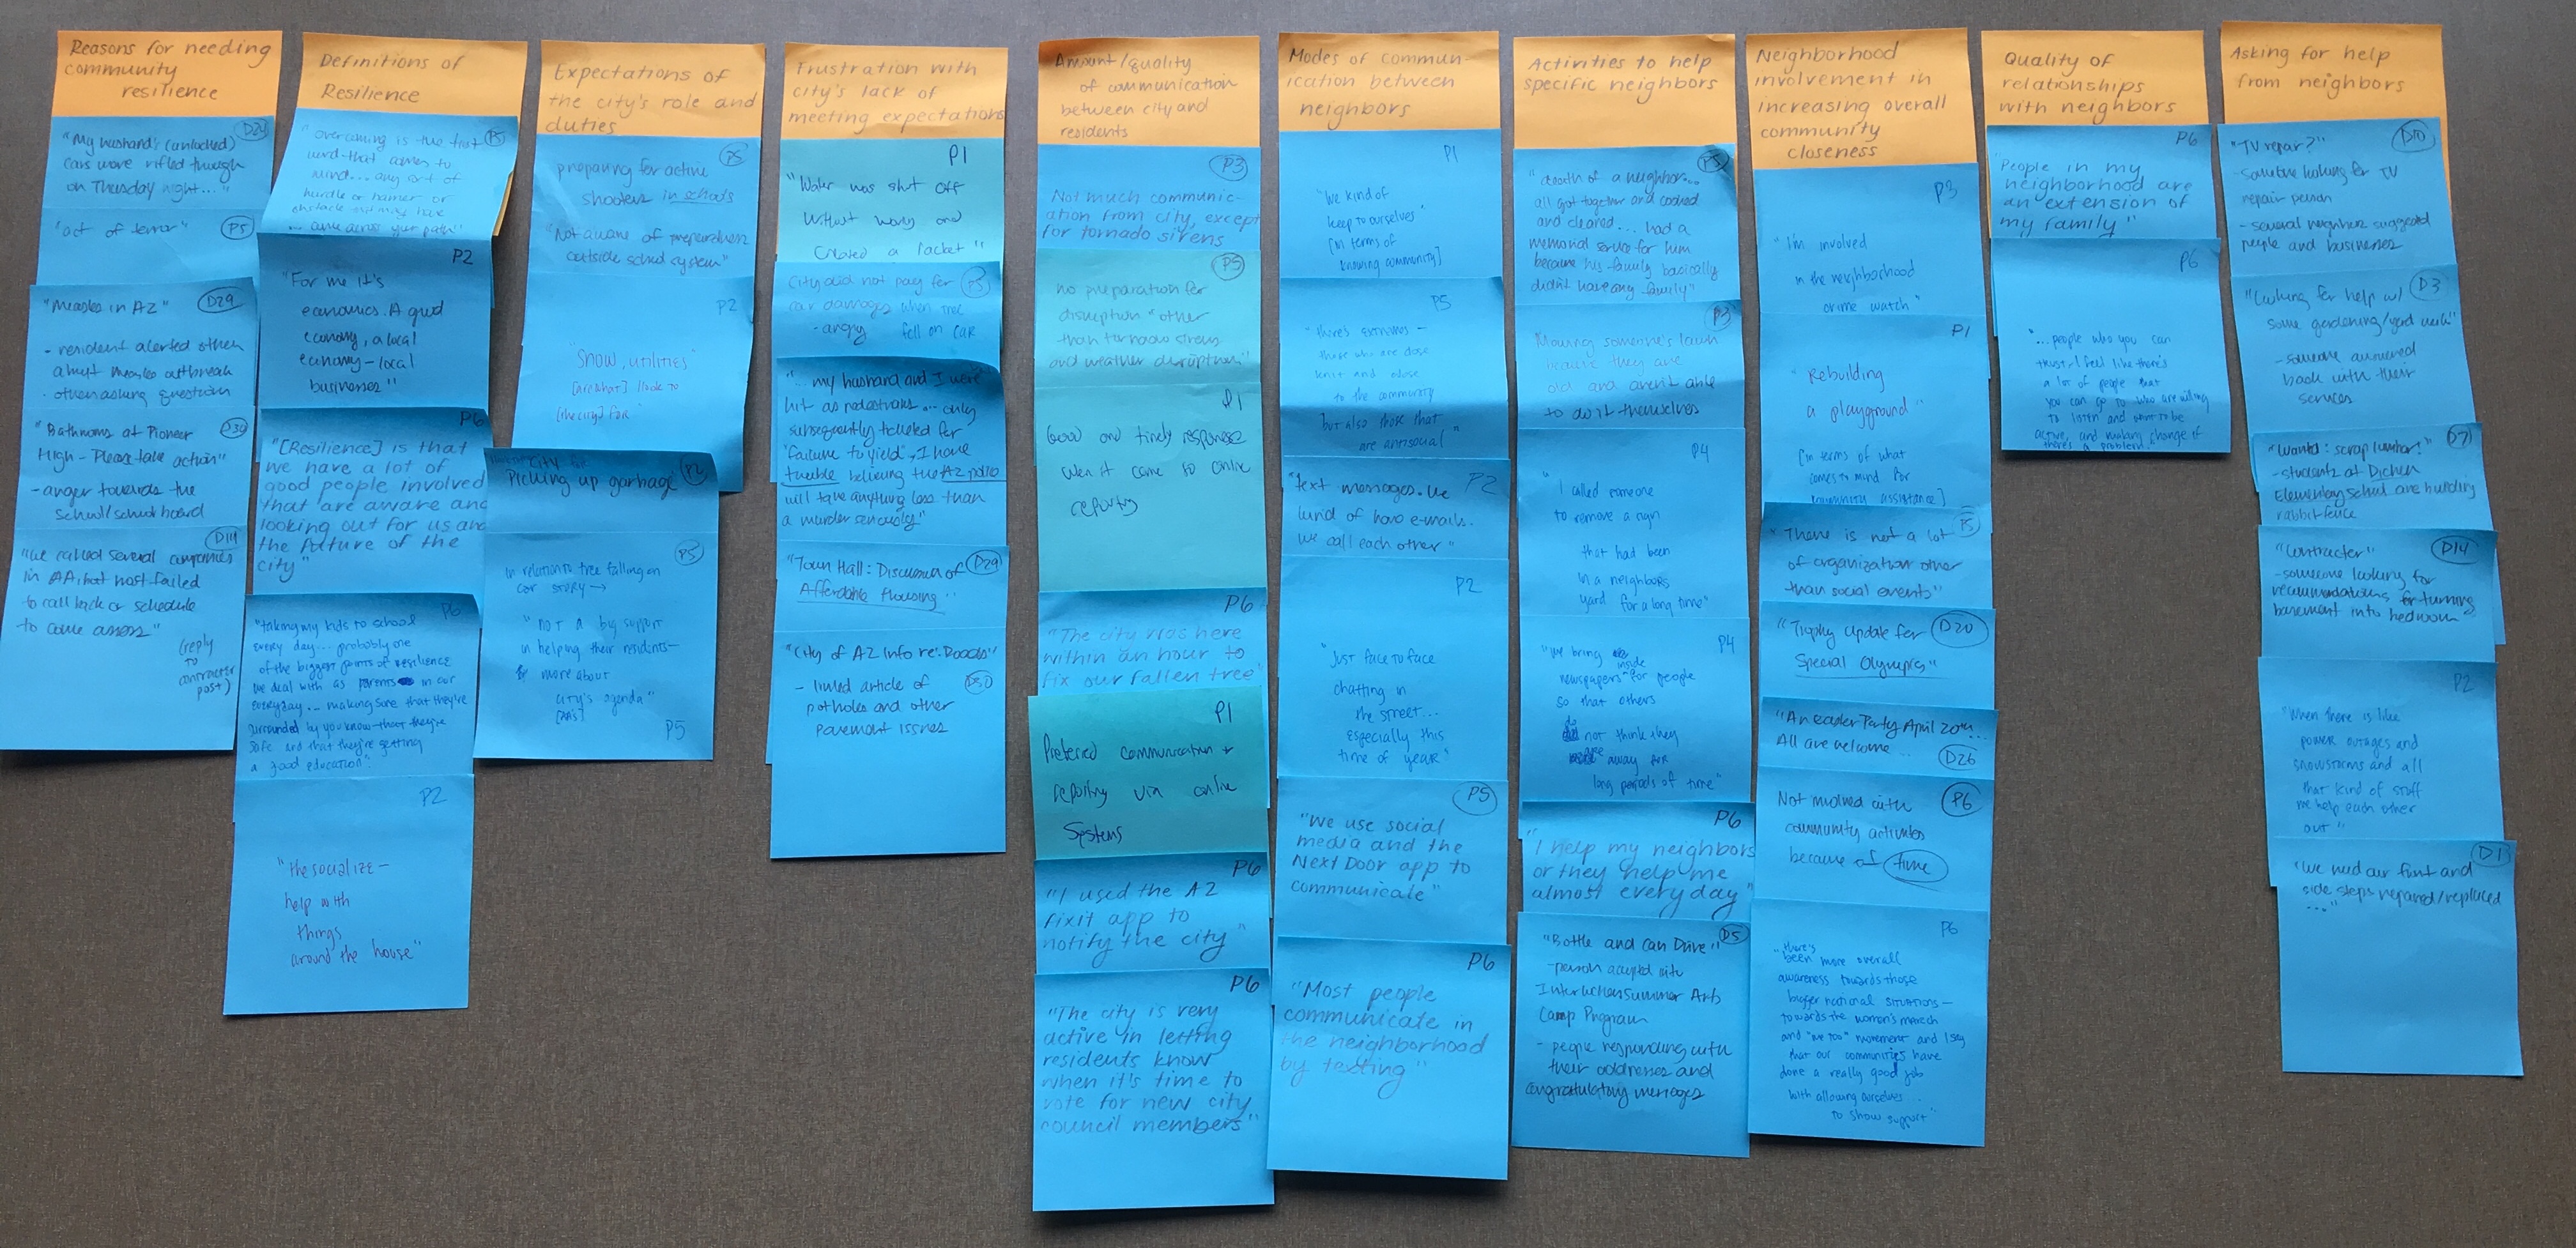 Reasons for needing
community
resilience
"My husband's (unlocked) D24
cars were rifled through
on Thursday night..."
"act of terror" P5
"Measles in A2" D29
- resident alerted others
about measles outbreak
· others asking questions
"Bathrooms at Pioneer
High - Please take action"
- anger towards the
school/school board
"We called several companies
in AA, but most failed
to call back or schedule
to come assess"
(reply
to
contractor
post)
Definitions of
Resilience
"overcoming is the first P5
word that comes to
mind... any sort of
hurdle or barrier or
obstacle
... came across your path"
P2
"For me it's
economics. A good
economy, a local
economy - local
businesses"
P6
"[Resilience] is that
we have a lot of
good people involved
that are aware and
looking out for us and
the future of the
city"
P6
"taking my kids to school
every day... probably one
of the biggest points of resilience
we deal with as parents in our
everyday... making sure that they're
surrounded by you know that they're
safe and that they're getting
a good education"
P2
"the socialize -
help with
things
around the house"
Expectations of
the city's role and
duties
P5
preparing for active
shooters in schools
"Not aware of preparedness
outside school system"
P2
"Snow, utilities"
[are what] I look to
[the city] for
city
Picking up garbage P2
P5
in relation to tree falling on
car story →
"not a big support
in helping their residents -
more about
city's agenda"
[AA's]
P5
Frustration with
city's lack of
meeting expectations
P1
"Water was shut off
without warning and
created a racket"
City did not pay for P3
car damages when tree
- angry fell on car
"... my husband and I were
hit as pedestrians... only
subsequently ticketed for
"failure to yield", I have
trouble believing the A2 police
will take anything less than
a murder seriously"
"Town Hall: Discussion of D29
Affordable Housing"
"City of A2 Info re: Roads"
- linked article of D30
potholes and other
pavement issues
Amount/quality
of communication
between city and
residents
P3
Not much communic-
ation from city, except
for tornado sirens
P5
no preparation for
disruption "other
than tornado sirens
and weather disruption"
P1
Good and timely response
when it came to online
reporting
P6
"The city was here
within an hour to
fix our fallen tree"
P1
Preferred communication +
reporting via online
Systems
P6
"I used the A2
fixit app to
notify the city"
P6
"The city is very
active in letting
residents know
when it's time to
vote for new city
council members"
Modes of commun-
ication between
neighbors
P1
"We kind of
keep to ourselves"
[in terms of
knowing community]
P5
"there's extremes -
those who are close
knit and close
to the community
but also those that
are antisocial"
"text messages. we P2
kind of have e-mails.
we call each other"
P2
"Just face to face
chatting in
the street...
especially this
time of year"
P5
"We use social
media and the
Next Door app to
communicate"
P6
"Most people
communicate in
the neighborhood
by texting"
Activities to help
specific neighbors
P5
"death of a neighbor...
all got together and cooked
and cleaned... had a
memorial service for him
because his family basically
didn't have any family"
P3
Mowing someone's lawn
because they are
old and aren't able
to do it themselves
P4
"I called someone
to remove a sign
that had been
in a neighbors
yard for a long time"
P4
"we bring inside
newspapers for people
so that others
do not think they
are away for
long periods of time"
P6
"I help my neighbors
or they help me
almost every day"
"Bottle and Can Drive" D5
- person accepted with
Interlochen Summer Arts
Camp Program
- people responding with
their addresses and
congratulatory messages
Neighborhood
involvement in
increasing overall
community
closeness
P3
"I'm involved
in the neighborhood
crime watch"
P1
"Rebuilding
a playground"
[in terms of what
comes to mind for
community assistance]
"There is not a lot P5
of organization other
than social events"
"Trophy update for D20
Special Olympics"
"An easter Party April 20th...
All are welcome... D26
Not involved with P6
community activities
because of time
P6
"there's
been more overall
awareness towards those
bigger national situations -
towards the women's march
and "me too" movement and I say
that our communities have
done a really good job
with allowing ourselves...
to show support"
Quality of
relationships
with neighbors
P6
"People in my
neighborhood are
an extension of
my family"
P6
"...people who you can
trust - I feel like there's
a lot of people that
you can go to who are willing
to listen and want to be
active, and making change if
there's a problem"
Asking for help
from neighbors
"TV repair?" D10
- someone looking for TV
repair person
- several neighbors suggested
people and businesses
"Looking for help w/ D3
some gardening/yard work"
- someone answered
back with their
services
"Wanted: scrap lumber!" D7
- students at Dicken
Elementary school are building
rabbit fence
"Contractor" D14
- someone looking for
recommendations for turning
basement into bedroom
P2
"When there is like
power outages and
snowstorms and all
that kind of stuff
we help each other
out"
D1
"We need our front and
side steps repaired/replaced
..."